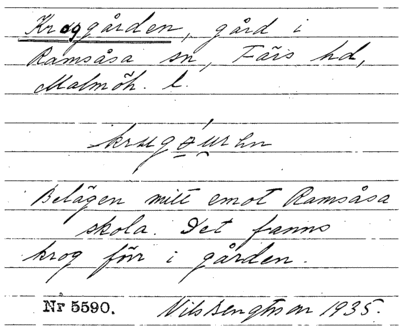 Kroggården, gård i
Ramsåsa sn, Färs hd,
Malmöh. l.
Belägen mitt emot Ramsåsa
skola. Det fanns
krog förr i gården.
Nr 5590. Nils Bengtsson 1935.